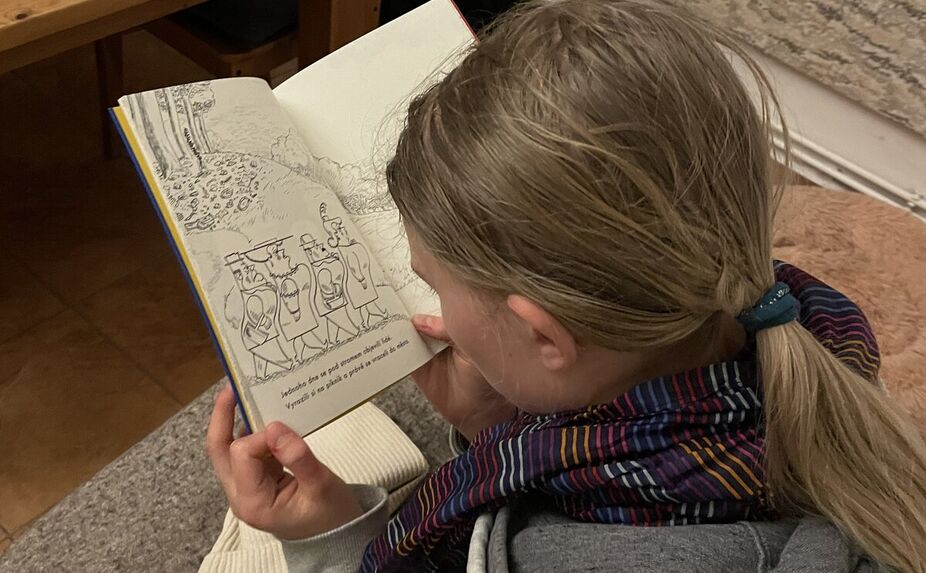 Jednoho dne se pod stromem objevili lidé.
Vyrazili si na piknik a právě se vraceli do města.